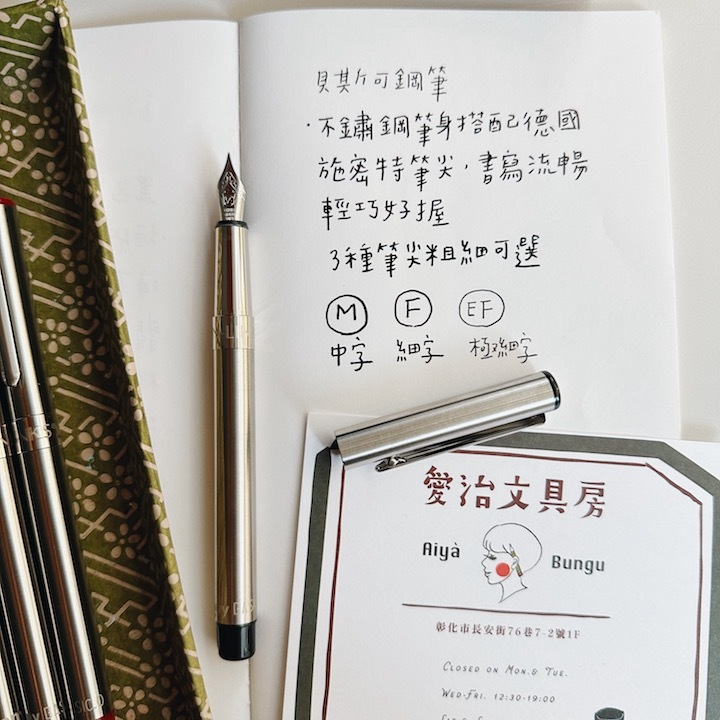 貝斯可鋼筆
·不鏽鋼筆身搭配德國
施密特筆尖，書寫流暢
輕巧好握
3種筆尖粗細可選
M F EF
中字 細字 極細字
愛治文具房
Aiyà Bungu
彰化市長安街76巷7-2號1F
CLOSED ON MON.& TUE.
WED-FRI. 12:30-19:00